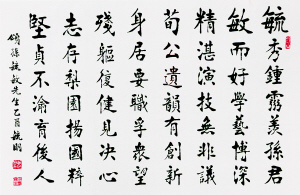 毓秀鍾靈羨孫君
敏而好學藝博深
精湛演技無非議
荀公遺韻有創新
身居要職孚衆望
殘軀復健見决心
志存梨園揚國粹
堅貞不渝育後人
頌孫毓敏先生乙酉毓明